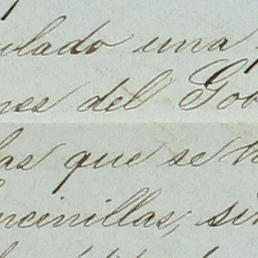 ulado una
nes del Gob
las que se h
ncinillas, sin